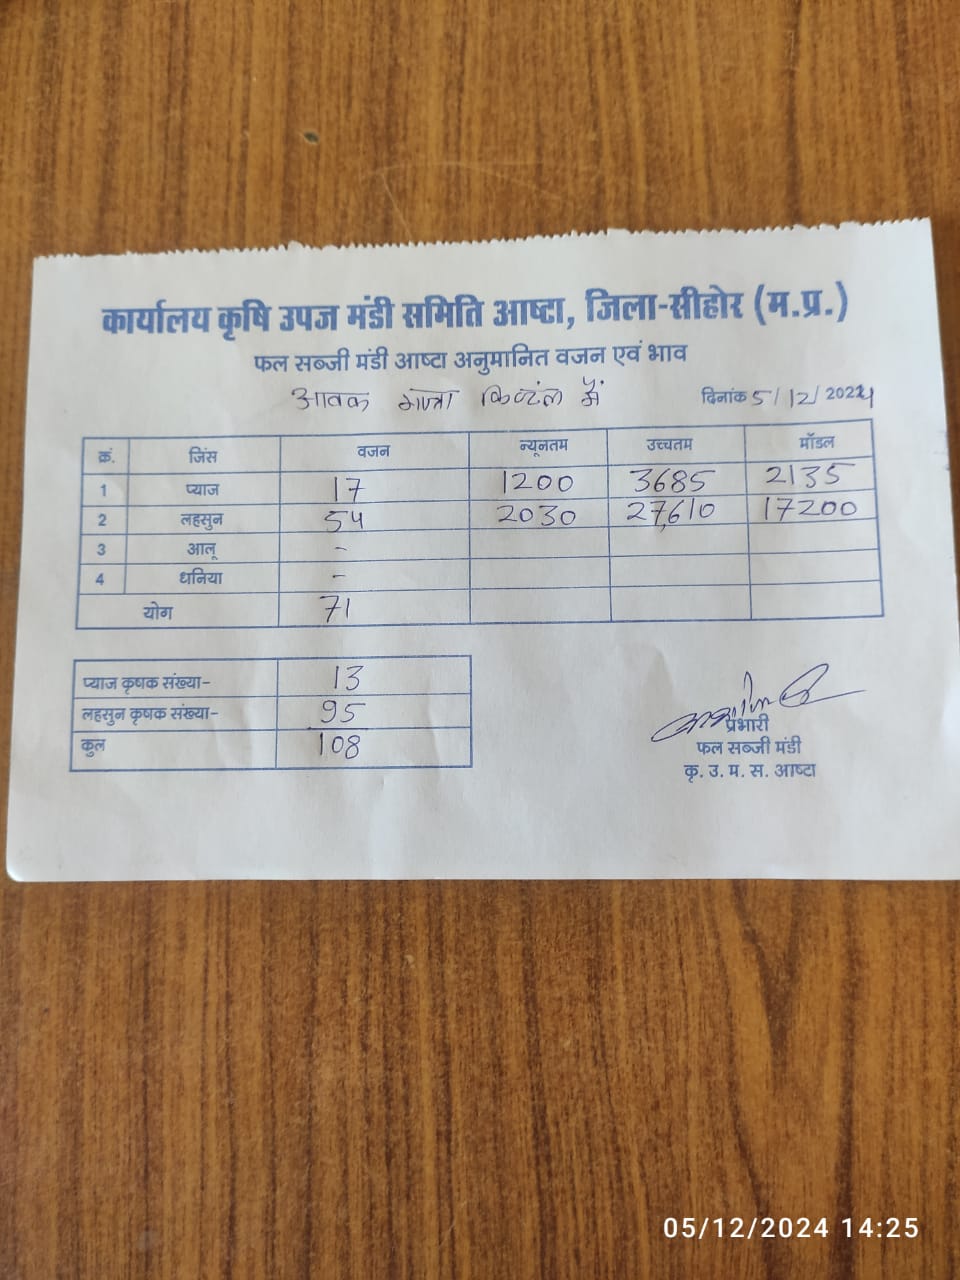 कार्यालय कृषि उपज मंडी समिति आष्टा, जिला-सीहोर (म.प्र.)
फल सब्जी मंडी आष्टा अनुमानित वजन एवं भाव
आवक मात्रा क्विंटल में दिनांक 5/12/2024
क्रं. जिंस वजन न्यूनतम उच्चतम मॉडल
1 प्याज 17 1200 3685 2135
2 लहसुन 54 2030 27,610 17200
3 आलू -
4 धनिया -
योग 71
प्याज कृषक संख्या- 13
लहसुन कृषक संख्या- 95
कुल 108
प्रभारी
फल सब्जी मंडी
कृ. उ. म. स. आष्टा
05/12/2024 14:25